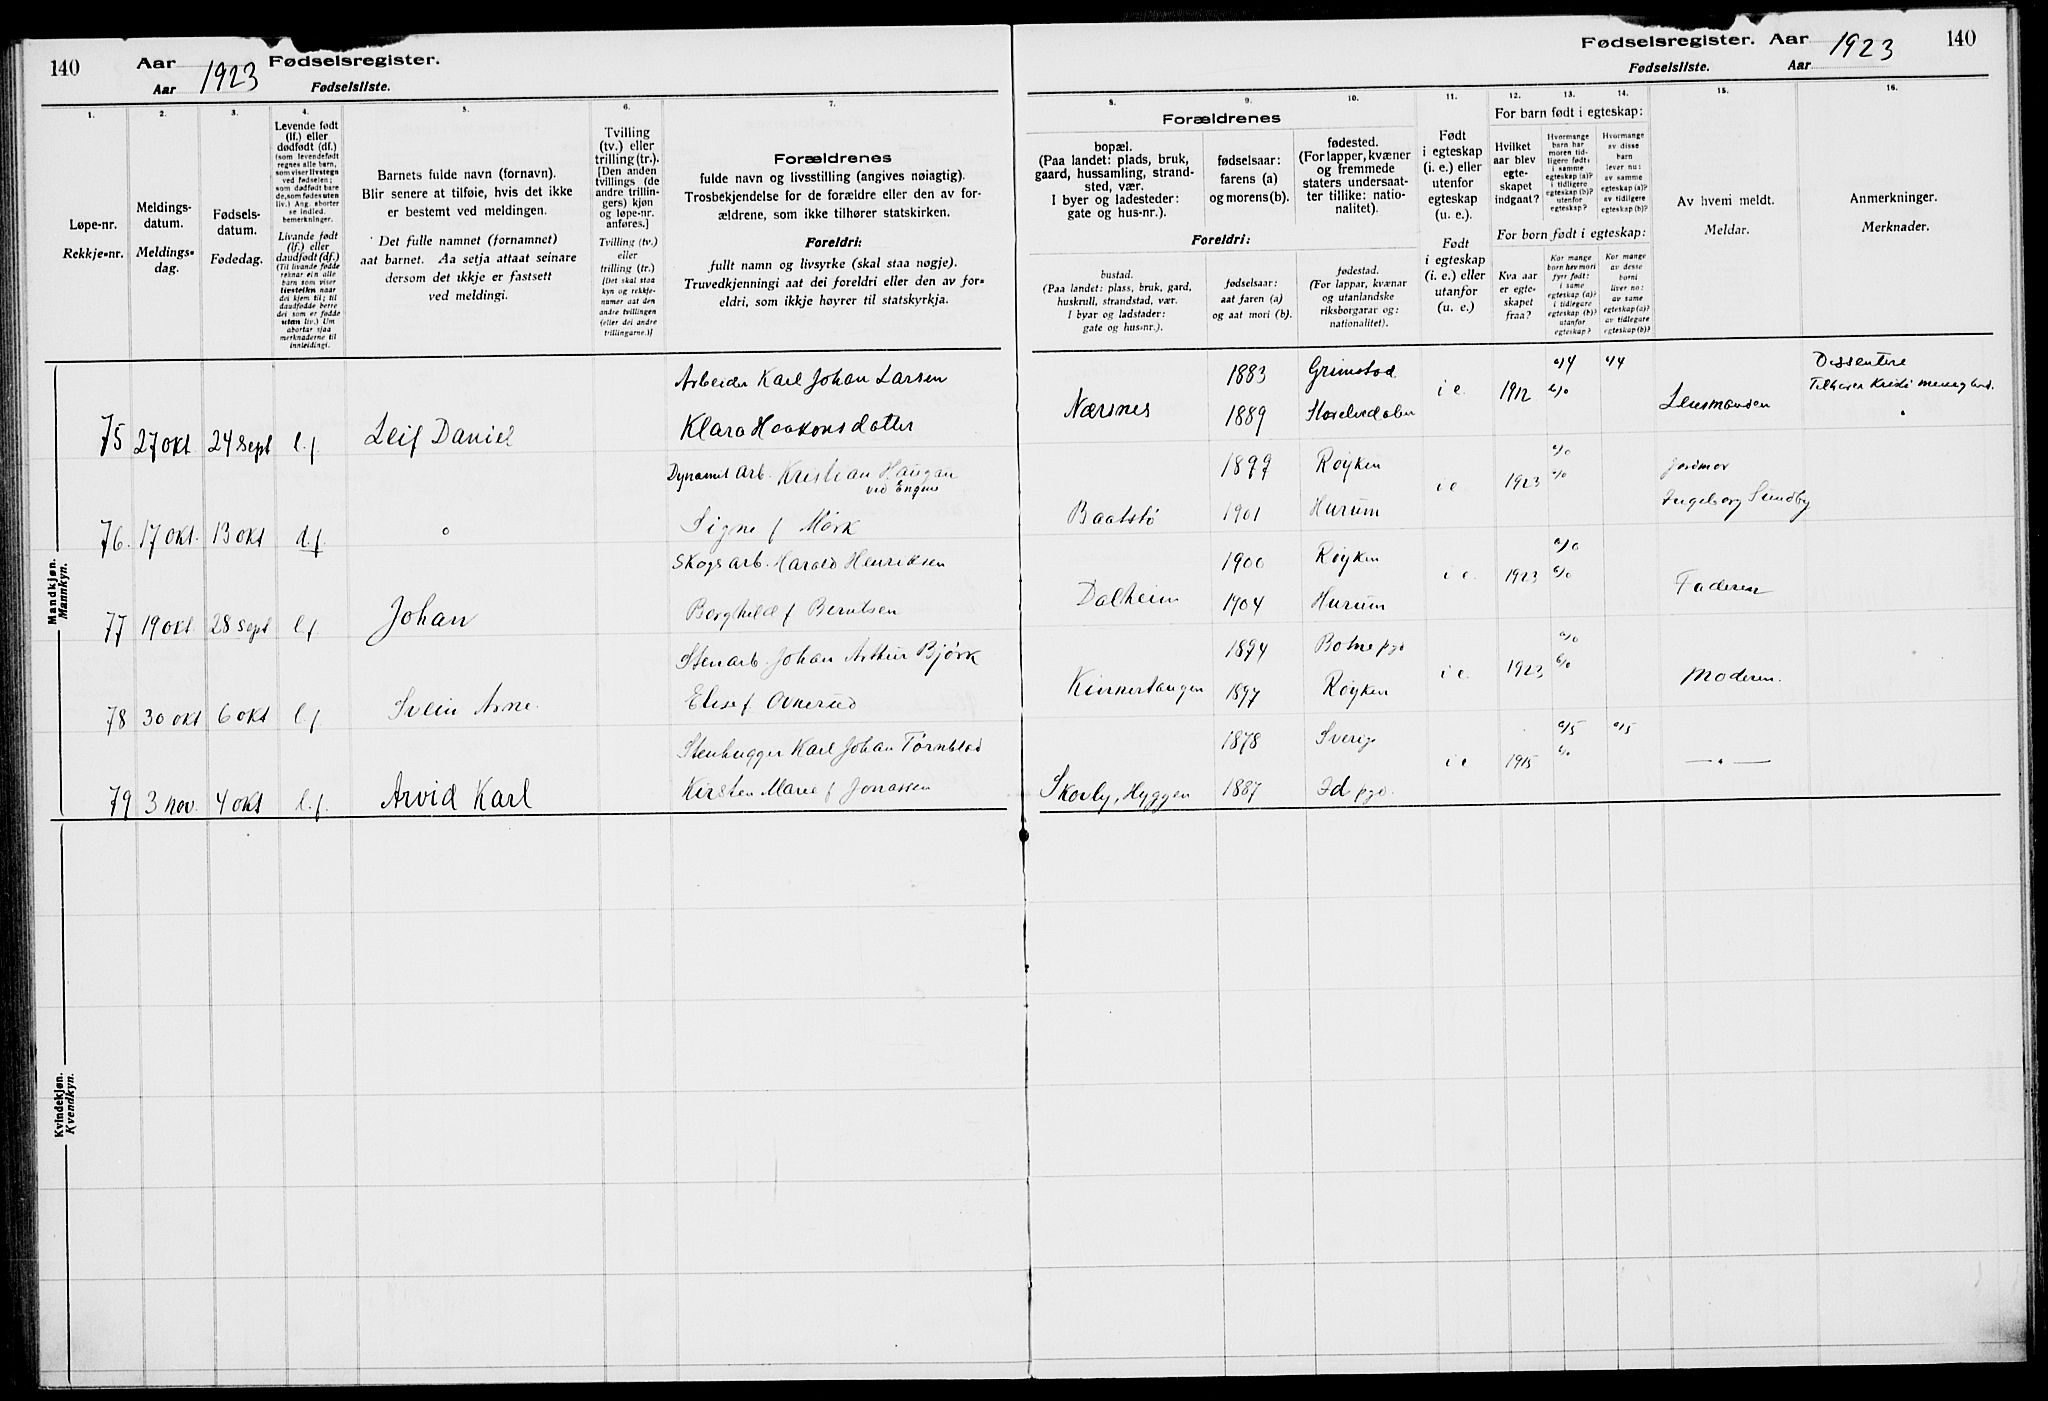 140
Aar 1923 Fødselsregister.
Aar Fødselsliste.
1. 2. 3. 4. 5. 6. 7.
Løpe-nr.
Rekkje-nr.
Meldings-
datum.
Meldings-
dag.
Fødsels-
datum.
Fødedag.
Levende født
(lf.) eller
dødfødt (df.)
(som levendefødt
regnes alle barn,
som viser livstegn
ved fødselen;
som dødfødt bare
de, som fødes uten
liv.) Ang. aborter
se indled.
bemerkninger.
Livande født
(lf.) eller
daudfødt (df.)
(Til livande fødde
reknar ein alle
barn som viser
livsteikn naar
dei kjem til; til
daudfødde berre
dei som er fødde
utan liv.) Um
abortar sjaa
merknaderne til
innleidingi.
Barnets fulde navn (fornavn).
Blir senere at tilføie, hvis det ikke
er bestemt ved meldingen.
Det fulle namnet (fornamnet)
aat barnet. Aa setja attaat seinare
dersom det ikkje er fastsett
ved meldingi.
Tvilling
(tv.) eller
trilling (tr.).
[Den anden
tvillings (de
andre trillin-
gers) kjøn
og løpe-nr.
anføres.]
Tvilling (tv.)
eller
trilling (tr.)
[Det skal staa
kyn og rekkje-
numer aat den
andre tvillingen
(eller dei andre
trillingarne.)]
Forældrenes
fulde navn og livsstilling (angives nøiagtig).
Trosbekjendelse for de forældre eller den av for-
ældrene, som ikke tilhører statskirken.
Foreldri:
fullt namn og livsyrke (skal staa nøgje).
Truvedkjenningi aat dei foreldri eller den av for-
eldri, som ikkje høyrer til statskyrkja.
Mandkjøn.
Mannkyn.
Arbeider Karl Johan Larsen
75 27 okt. 24 sept l.f. Leif Daniel Klara Haakonsdatter
Dynamit arb. Kristian Haugan
76. 17 okt. 13 okt d.f. o Signe f Mørk
Skogsarb. Harald Henriksen
77 19 okt. 28 sept l.f Johan Borghild f Berntsen
Stenarb. Johan Arthur Bjørk
78 30 okt 6 okt l.f Svein Arne. Elise f
Stenhugger Karl Johan Tørnblad
79 3 nov. 4 okt l.f. Arvid Karl Kirsten Marie f Jonassen
Kvindekjøn.
Kvendkyn.
Fødselsregister. Aar 1923 140
Fødselsliste. Aar
8. 9. 10. 11. 12. 13. 14. 15. 16.
Forældrenes
bopæl.
(Paa landet: plads, bruk,
gaard, hussamling, strand-
sted, vær.
I byer og ladesteder:
gate og hus-nr.).
fødselsaar:
farens (a)
og morens (b).
fødested.
(For lapper, kvæner
og fremmede
staters undersaat-
ter tillike: natio-
nalitet).
Foreldri:
bustad.
(Paa landet: plass, bruk, gard,
huskrull, strandstad, vær.
I byar og ladstader:
gate og hus-nr.).
fødselsaar:
aat faren (a)
og aat mori (b).
fødestad.
(For lappar, kvænar
og utanlandske
riksborgarar og:
nationalitet).
Født
i egteskap
(i. e.) eller
utenfor
egteskap
(u. e.).
Født
i egteskap
(i. e.) eller
utanfor
(u. e.)
For barn født i egteskap:
Hvilket
aar blev
egte-
skapet
indgaat?
Hvormange
barn har
moren tid-
ligere født:
i samme
egteskap (a)?
i tidligere
egteskap (b)?
utenfor
egteskap?
Hvormange
av disse
barn
lever nu:
av samme
egteskap (a)?
av tidligere
egteskap (b)?
For born født i egteskap:
Kva aar
er egte-
skapet
fraa?
Kor mange
born hev mori
fyrr født:
i same
egteskap (a)?
i tidlegare
egteskap (b)?
utanfor
egteskap?
Kor mange
av desse
borni
liver no:
av same
egteskap (a)?
av tidlegare
egteskap (b)?
Av hvem meldt.
Meldar.
Anmerkninger.
Merknader.
1883 Grimstad a/4 a/4 Dissentere
Nærsnes 1889 i e. 1912 b/o Lensmanden
1899 Røyken a/o Jordmor
Baatstø 1901 Hurum i e 1923 Ingeborg Sundby
1900 Røyken a/o
Dalheim 1904 Hurum i e. 1923 b/o Faderen
1894 Botne pgd a/o
Kinnertangen 1897 Røyken i e. 1923 b/o Moderen.
1878 Sverige a/5 a/5
Skovly, Hyggen 1887 Id pgd. i e 1915 b/o — " —